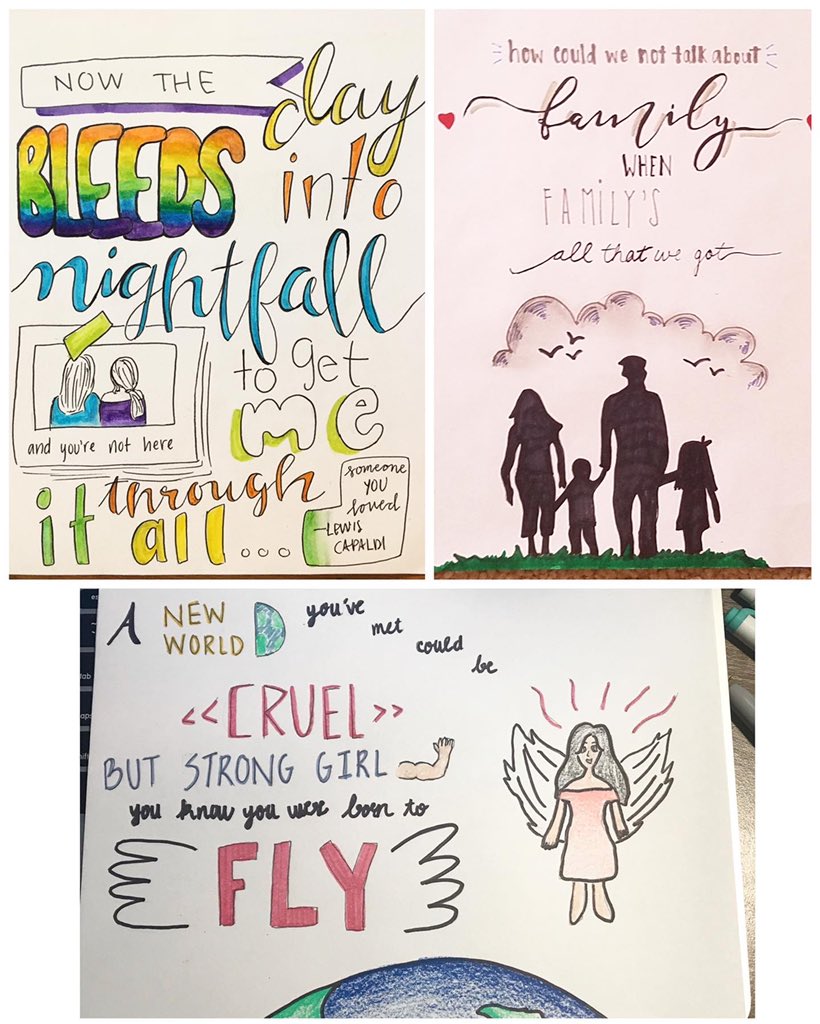 NOW THE day
BLEEDS into
nightfall
to get
me
and you're not here
through
it all...
someone
YOU
loved
-LEWIS
CAPALDI
how could we not talk about
family
WHEN
FAMILY'S
all that we got
A NEW WORLD you've met could be
<<CRUEL>>
BUT STRONG GIRL
you know you were born to
FLY